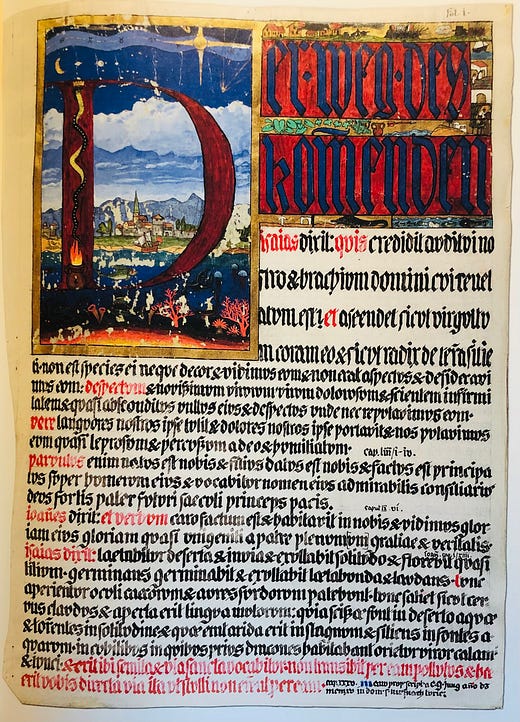 Fol. I.
Der weg des
komenden
isaias dixit: quis credidit auditui no
stro & brachium domini cui revel
atum est? et ascendet sicut virgultu
m coram eo & sicut radix de terra sitie
ti non est species ei neque decor & vidimus eum & non erat aspectus & desideravi
mus eum: despectum & novissimum virorum virum dolorosum & scientem infirmi
tatem & quasi absconditus vultus eius & despectus unde nec reputavimus eum.
vere languores nostros ipse tulit & dolores nostros ipse portavit & nos putavimus
eum quasi leprosum & percussum a deo & humiliatum. cap. liii/ i-iv.
parvulus enim natus est nobis & filius datus est nobis & factus est principa
tus super humerum eius & vocabitur nomen eius admirabilis consiliarius
deus fortis pater futuri saeculi princeps pacis. caput ix. vi.
ioanes dixit: et verbum caro factum est & habitavit in nobis & vidimus glor
iam eius gloriam quasi unigeniti a patre plenum gratiae & veritatis.
isaias dixit: laetabitur deserta & invia & exultabit solitudo & florebit quasi
lilium. germinans germinabit & exultabit laetabunda & laudans. tunc
aperientur oculi caecorum & aures sordorum patebunt. tunc saliet sicut cer
vus claudus & aperta erit lingua mutorum: quia scissae sunt in deserto aquae
& torrentes in solitudine & quae erat arida erit in stagnum & sitiens in fontes a
quarum. in cubilibus in quibus prius dracones habitabant orietur viror calam
& iunci. & erit ibi semita & via sancta vocabitur. non transibit per eam pollutus & ha
erit vobis directa via ita ut stulti non errent per eam. cap. xxxv.